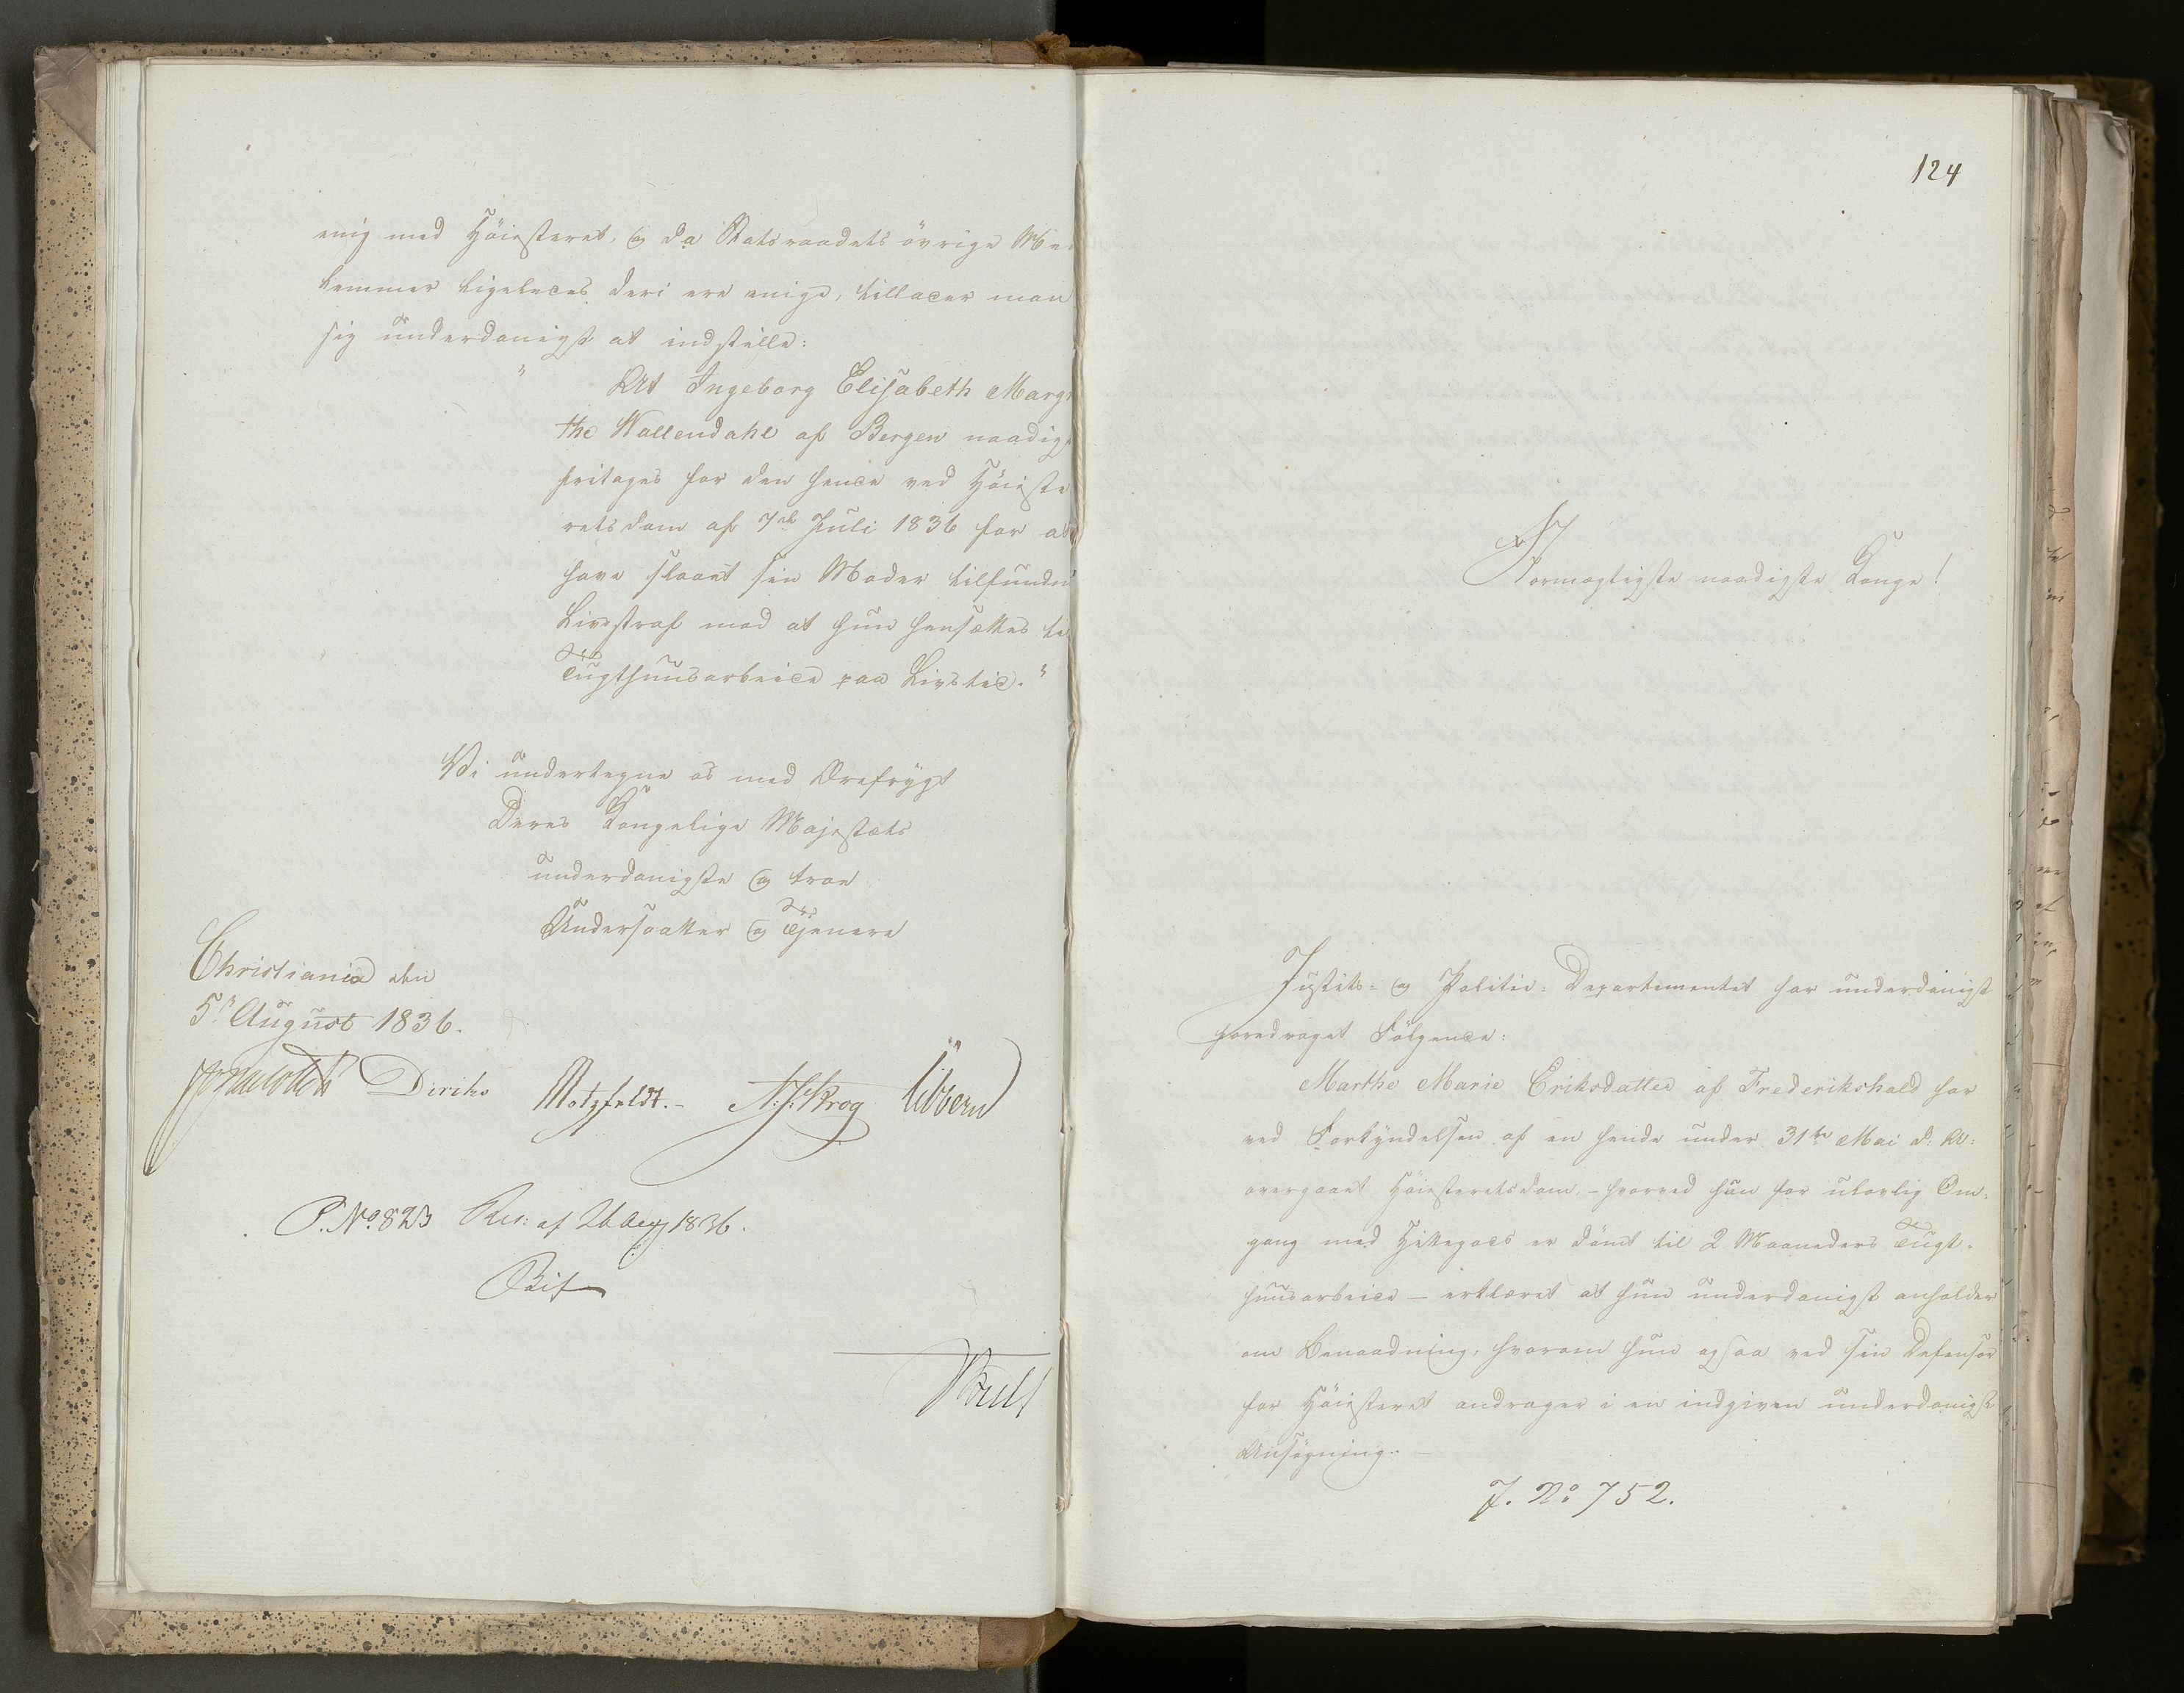 enig med Höiesteret, og da Statsraadets övrige Med
lemmer ligeledes deri ere enige, tillader man
sig underdanigst at indstille:
" At Ingeborg Elisabeth Margr
the Wallendahl af Bergen naadigst
fritages for den hende ved Höieste
rets dom af 7de Juli 1836 for at
have slaaet sin Moder tilfundne
Livsstraf mod at hun hensættes til
Tugthuusarbeide paa Livstid."
Vi undertegne os med Ærefrygt
Deres Kongelige Majestæts
underdanigste og troe
Undersaatter og Tjenere
Christiania den
5te August 1836.
Diriks Motzfeldt.- A. J. Krog Vibern
P. No. 823 Res: af 26 Aug 1836.
124
Stormægtigste naadigste Konge!
Justits- og Politie-Departementet har underdanigst
foredraget Fölgende:
Marthe Marie Eriksdatter af Frederikshald har
ved Forkyndelsen af en hende under 31te Mai d: A:
overgaaet Höiesteretsdom, - hvorved hun for ulovlig Om-
gang med Hittegods er dömt til 2 Maaneders Tugt-
huusarbeide - erklæret at hun underdanigst anholder
om Benaadning, hvorom hun ogsaa ved sin Defensor
for Höiesteret andrager i en indgiven underdanigst
Ansögning. -
J. No 752.